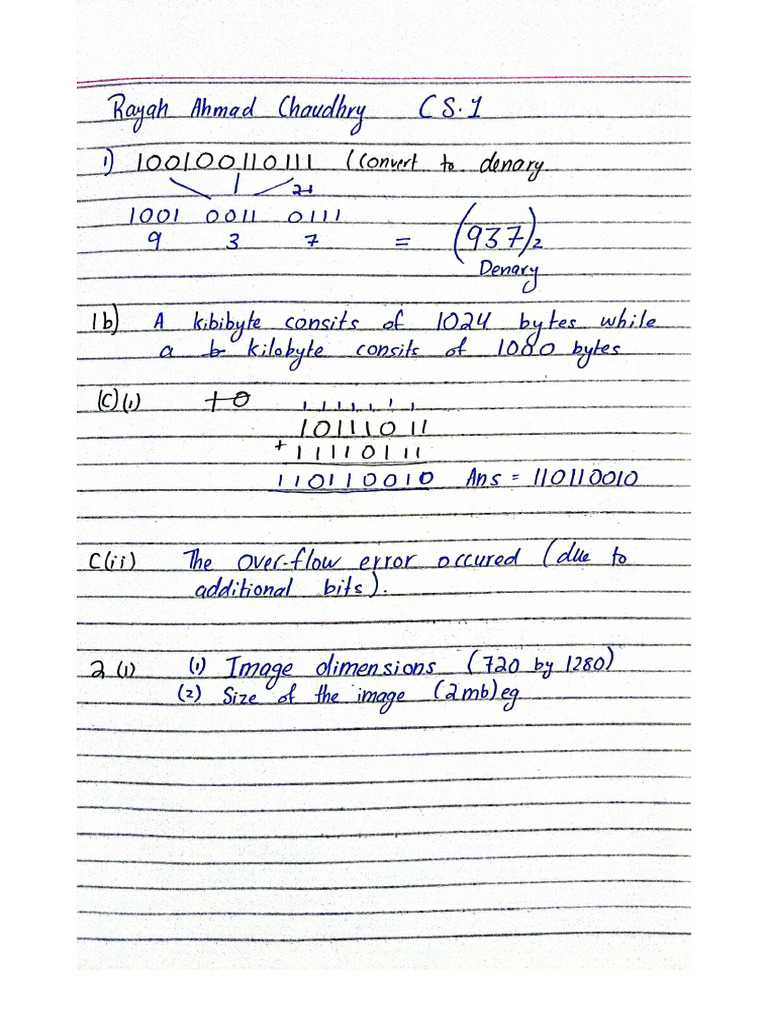 Rayah Ahmad Chaudhry CS.1
1) 100100110111 (Convert to denary
1
1001 0011 0111
9 3 7 = (937)2
Denary
1b) A kibibyte consits of 1024 bytes while
a kilobyte consits of 1000 bytes
(C)(1)
1 1 1 1 1 1 1
10111011
+ 11110111
110110010 Ans = 110110010
C(ii) The over-flow error occured (due to
additional bits).
2(1) (1) Image dimensions (720 by 1280)
(2) Size of the image (2mb)eg